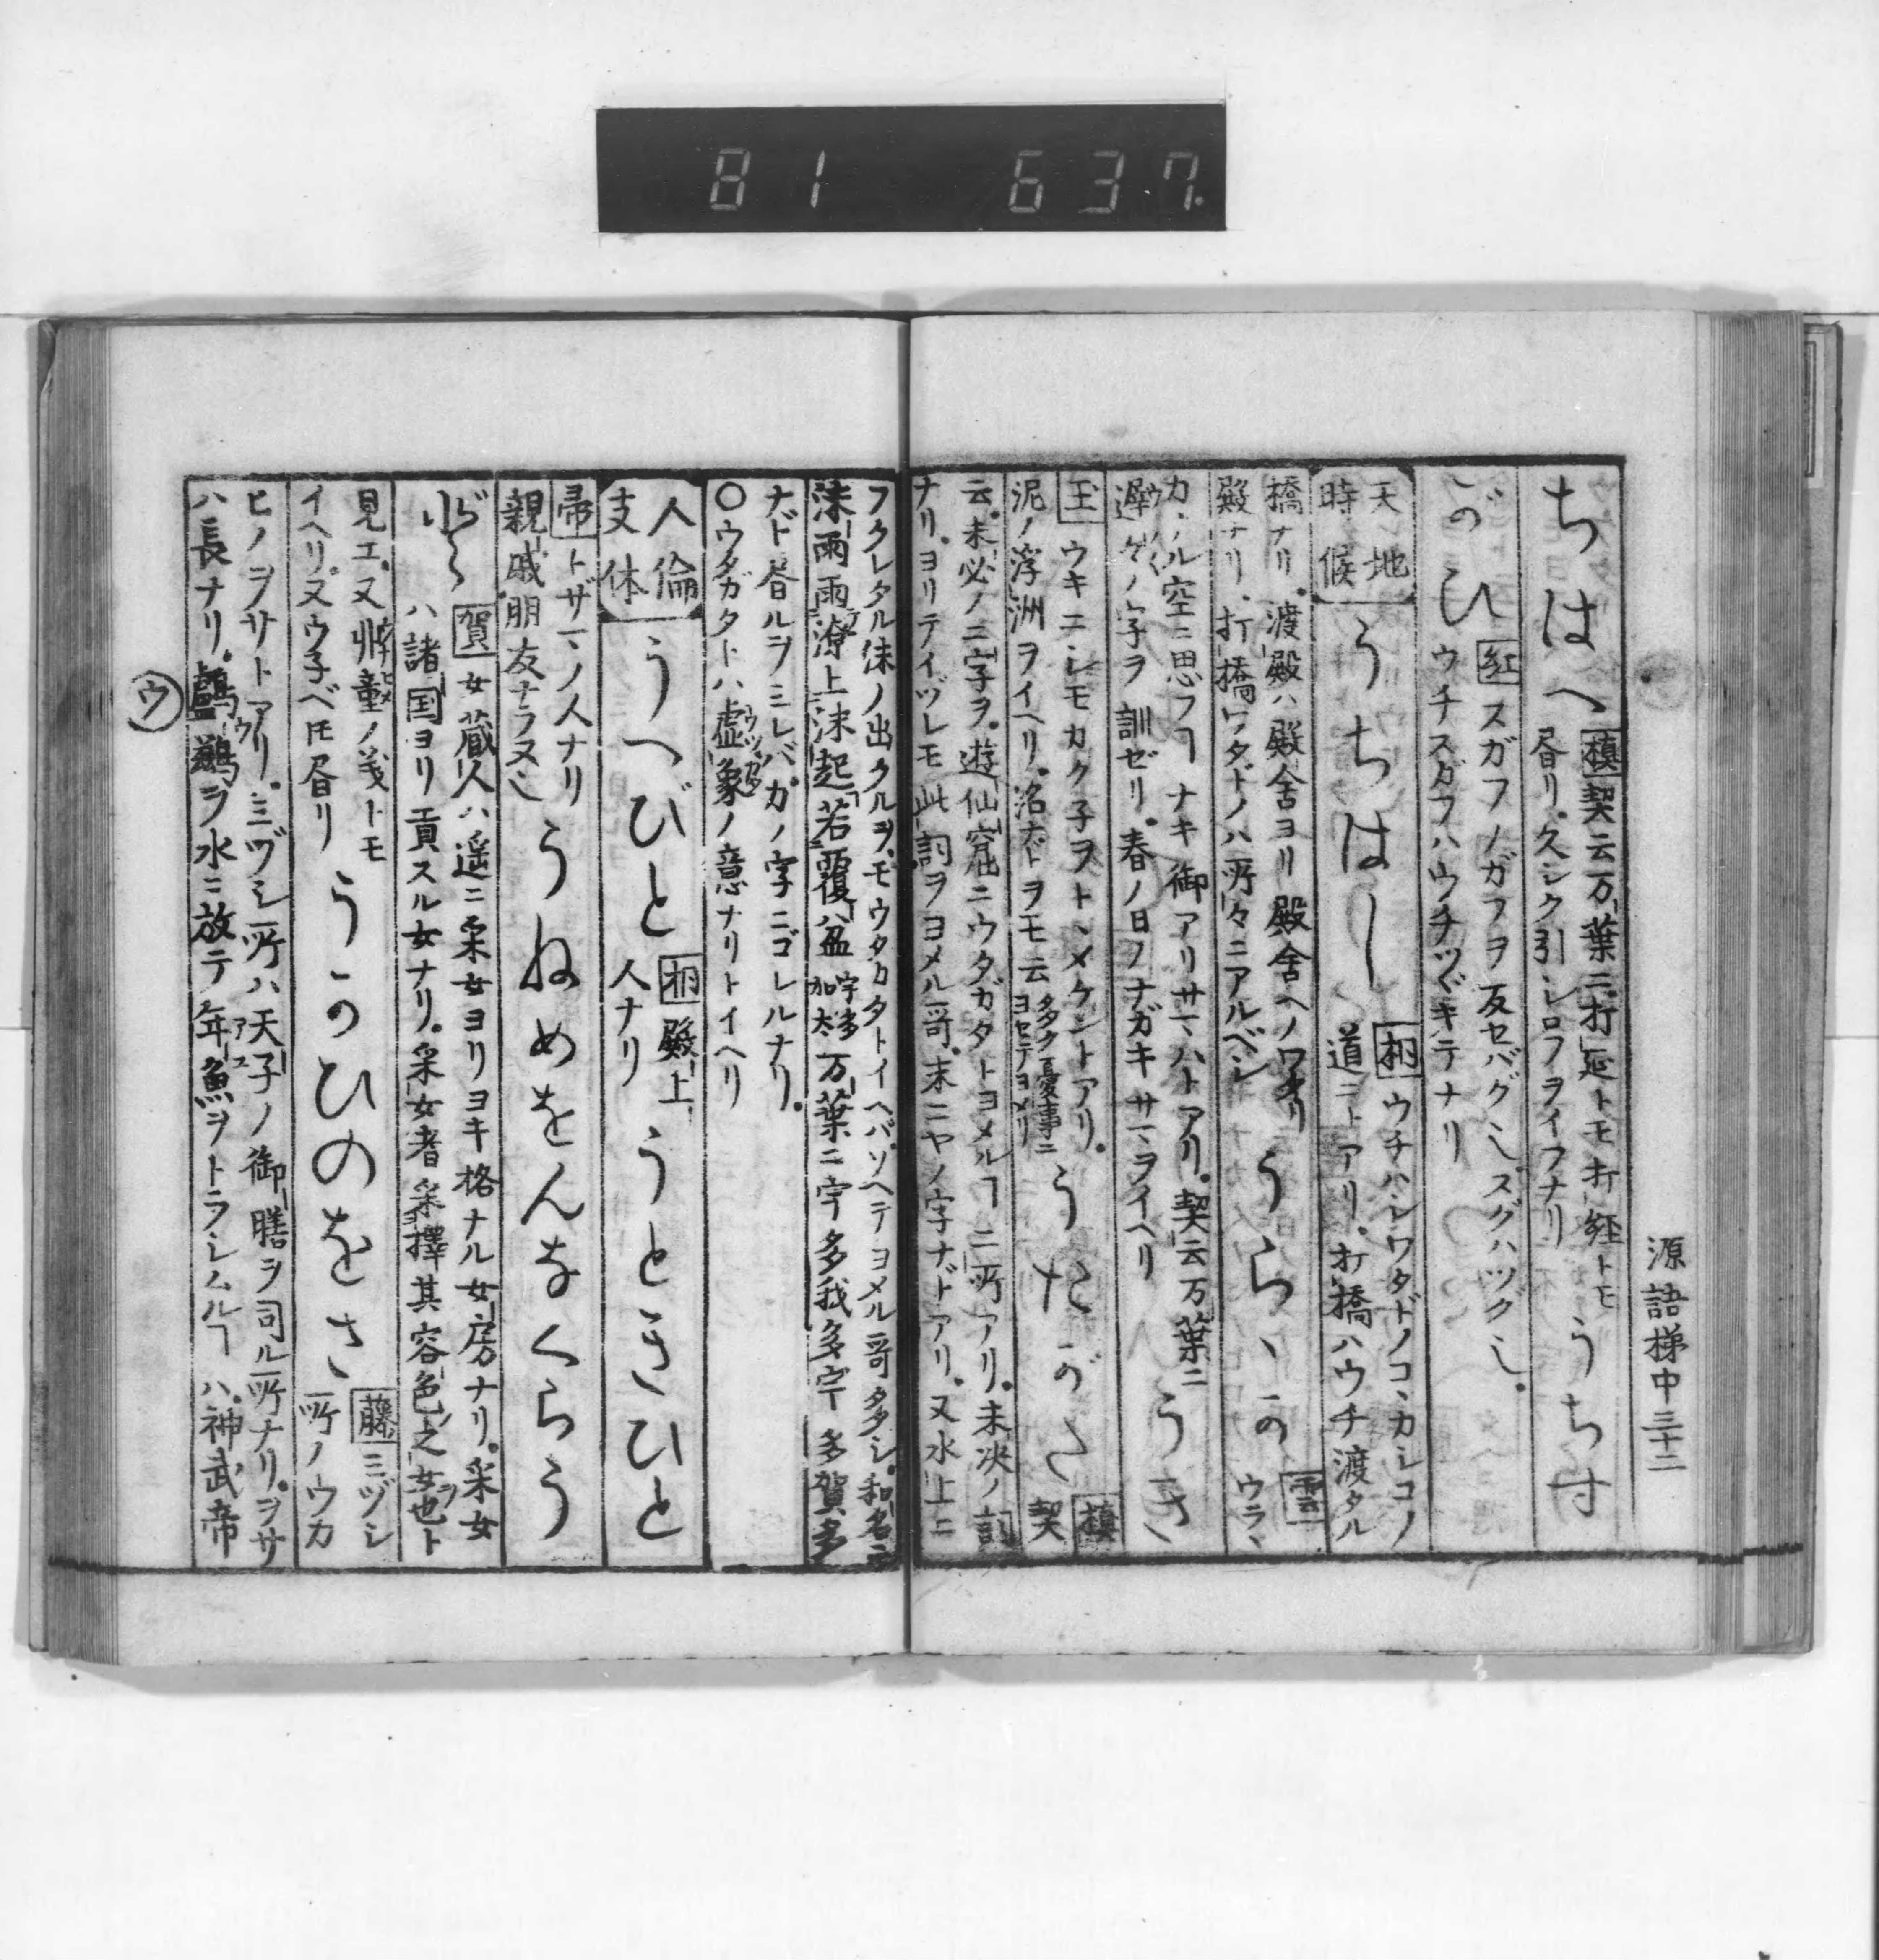 81 637
源語梯中三十二
ちはへ 槙 契云万葉ニ打延トモ打経トモ
昏リ。久シク引シロフヲイフナリ
うちすがひ 紅 スガフノガフヲ反セバグ也。スグハツグ也。
ウチスガフハウチツヾキテナリ
天地
時候
うちはし 桐 ウチハシワタドノコヽカシコノ
道ニトアリ。打橋ハウチ渡タル
橋ナリ。渡殿ハ殿舎ヨリ殿舎ヘノワタリ
殿ナリ。打橋ワタドノハ所々ニアルベシ
うらゝか 雲 ウラヽ
カヽル空ニ思フヿナキ御アリサマハトアリ。契云万葉ニ
遲〻ノ字ヲ訓ゼリ。春ノ日ノナガキサマヲイヘリ
うき
玉 ウキニシモカク子ヲトヾメケントアリ。
泥ノ浮洲ヲイヘリ。沼ナドヲモ云 多ク憂事ニ
ヨセテヨメリ
うたがた 槙 契
云。未必ノ二字ヲ。遊仙窟ニウタガタトヨメルヿ二所アリ。未決ノ詞
ナリ。ヨリテイヅレモ此詞ヲヨメル哥。末ニヤノ字ナドアリ。又水上ニ
フクレタル沫ノ出クルヲモウタカタトイヘバ。ソヘテヨメル哥多シ。和名云
沫雨雨潦上沫起若覆盆 宇多
加太 万葉ニ宇多我多宇多賀多
ナド昏ルヲミレバ。カノ字ニゴレルナリ。
〇ウタガタトハ虚象ノ意ナリトイヘリ
人倫
支体
うへびと 桐 殿上
人ナリ
うときひと
帚 トザマノ人ナリ
親戚朋友ナラヌ也
うねめをんなくらうど
賀 女蔵人ハ遥ニ采女ヨリヨキ格ナル女房ナリ。采女
ハ諸国ヨリ貢スル女ナリ。采女者采擇其容色之女也ト
見エ。又ノ義トモ
イヘリ。又ウ子ベトモ昏リ
うかひのをさ 藤 ミヅシ
所ノウカ
ヒノヲサトアリ。ミヅシ所ハ天子ノ御膳ヲ司ル所ナリ。ヲサ
ハ長ナリ。鸕鷀ヲ水ニ放テ年魚ヲトラシムルヿハ。神武帝
ウ